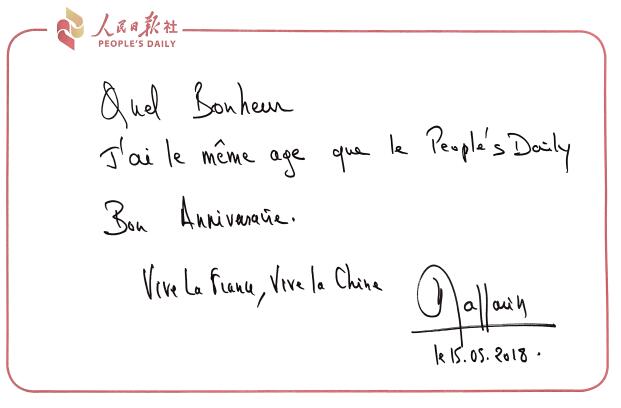 人民日报社
PEOPLE'S DAILY
Quel Bonheur
J'ai le même age que le People's Daily
Bon Anniversaire.
Vive La France, Vive la Chine
Raffarin
le 15.05.2018.